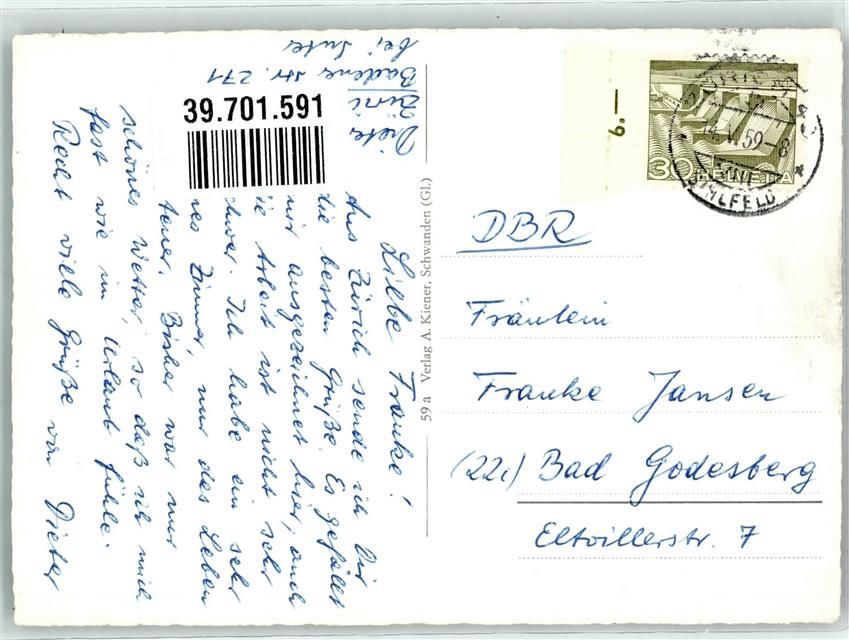 Liebe Frauke!
Aus Zürich sende ich Dir
die besten Grüße. Es gefällt
mir ausgezeichnet hier, auch
ie Arbeit ist nicht sehr
chwer. Ich habe ein sehr
nes Zimmer, nur das Leben
teuer. Bisher war nur
schönes Wetter, so daß ich mich
fast wie im Urlaub fühle.
Recht viele Grüße von Dieter
Dieter
Zürich
Badener Str. 271
bei Suter
39.701.591
59 a Verlag A. Kiener, Schwanden (Gl.)
6.—
30 HELVETIA
59-8
IHLFELD
DBR
Fräulein
Frauke Jansen
(22c) Bad Godesberg
Eltvillerstr. 7